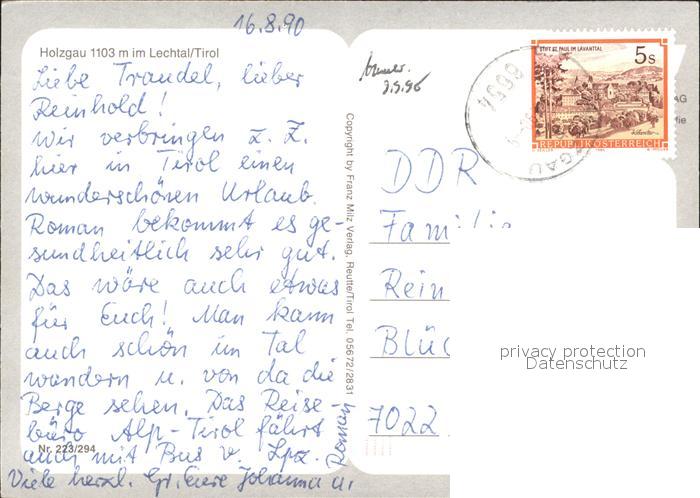 16.8.90
Holzgau 1103 m im Lechtal/Tirol
Liebe Traudel, lieber
Reinhold!
Wir verbringen z. Z.
hier in Tirol einen
wunderschönen Urlaub.
Roman bekommt es ge-
sundheitlich sehr gut.
Das wäre auch etwas
für Euch! Man kann
auch schön im Tal
wandern u. von da die
Berge sehen. Das Reise-
büro Alp-Tirol fährt
auch mit Bus v. Lpz.
Nr. 223/294
Viele herzl. Grüße Eure Johanna u.
Roman
Copyright by Franz Milz Verlag, Reutte/Tirol Tel. 05672/2831
STIFT ST. PAUL IM LAVANTTAL
5 S
REPUBLIK ÖSTERREICH
6654
GAU
AG
DDR
Famili
Rein
Blüc
7022
privacy protection
Datenschutz